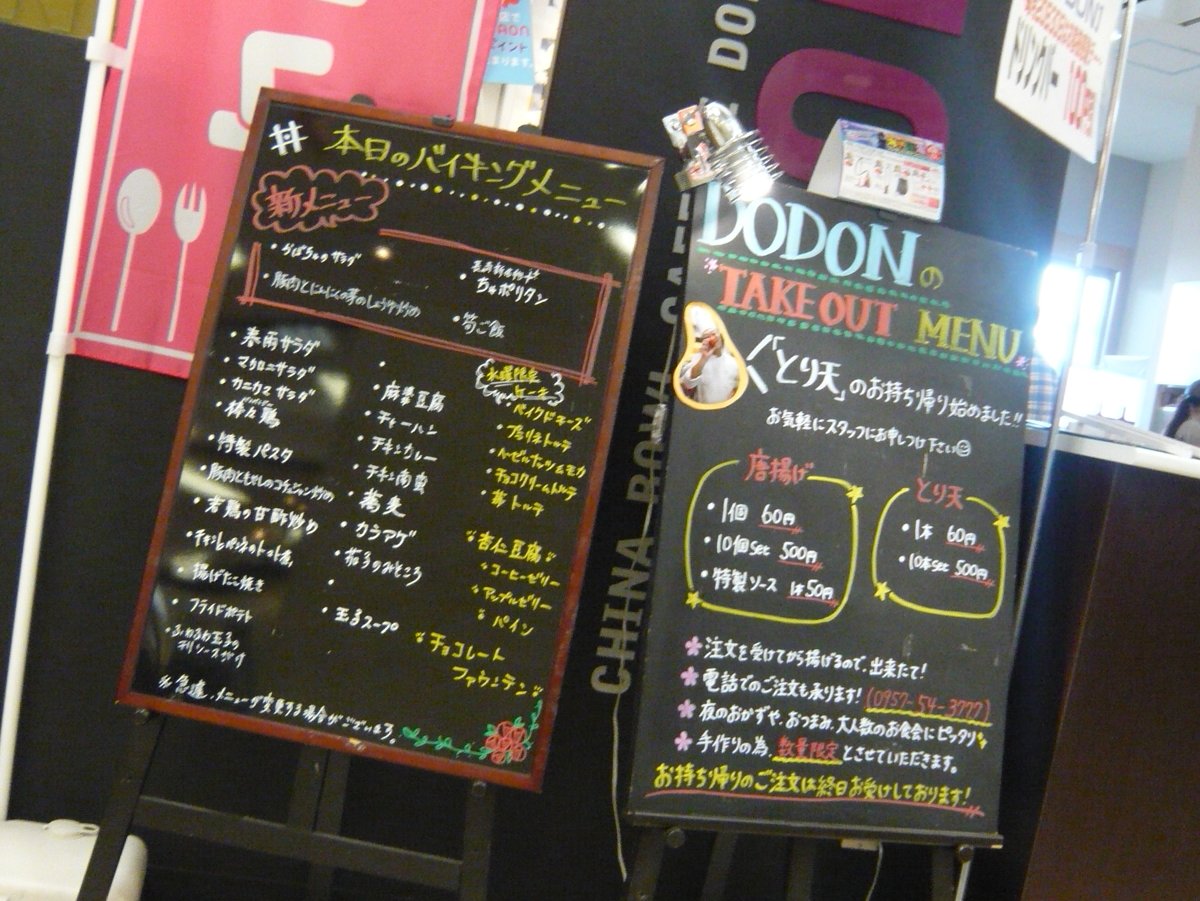 # 本日のバイキングメニュー
新メニュー
・かぼちゃのサラダ
・豚肉とにんにくの芽のしょうが炒め
ちゃポリタン
・筍ご飯
・春雨サラダ
・マカロニサラダ
・カニカマサラダ
・棒々鶏
・特製パスタ
・豚肉ともやしのコチュジャン炒め
・若鶏の甘酢炒め
・揚げたこ焼き
・フライドポテト
・ふわふわ玉子の
チリソースがけ
・麻婆豆腐
・チャーハン
・チキンカレー
・チキン南蛮
・蕎麦
・カラアゲ
・茄子のみぞれ
・玉子スープ
水曜限定
ケーキ
・ベイクドチーズ
・プラリネトルテ
・ヘーゼルナッツ&モカ
・チョコクリームトルテ
・苺トルテ
杏仁豆腐
コーヒーゼリー
アップルゼリー
パイン
チョコレート
ファウンテン
※急遽、メニューが変更する場合がございます。
CHINA BOWL
DODONの
TAKE OUT MENU
「とり天」のお持ち帰り始めました!!
お気軽にスタッフにお申しつけ下さい☺
唐揚げ
・1個 60円
・10個set 500円
・特製ソース 1本50円
とり天
・1本 60円
・10本set 500円
注文を受けてから揚げるので、出来たて!
電話でのご注文も承ります!(0957-54-3777)
夜のおかずや、おつまみ、大人数のお食会にピッタリ
手作りの為、数量限定とさせていただきます。
お持ち帰りのご注文は終日お受けしております!
ドリンクバー
100円